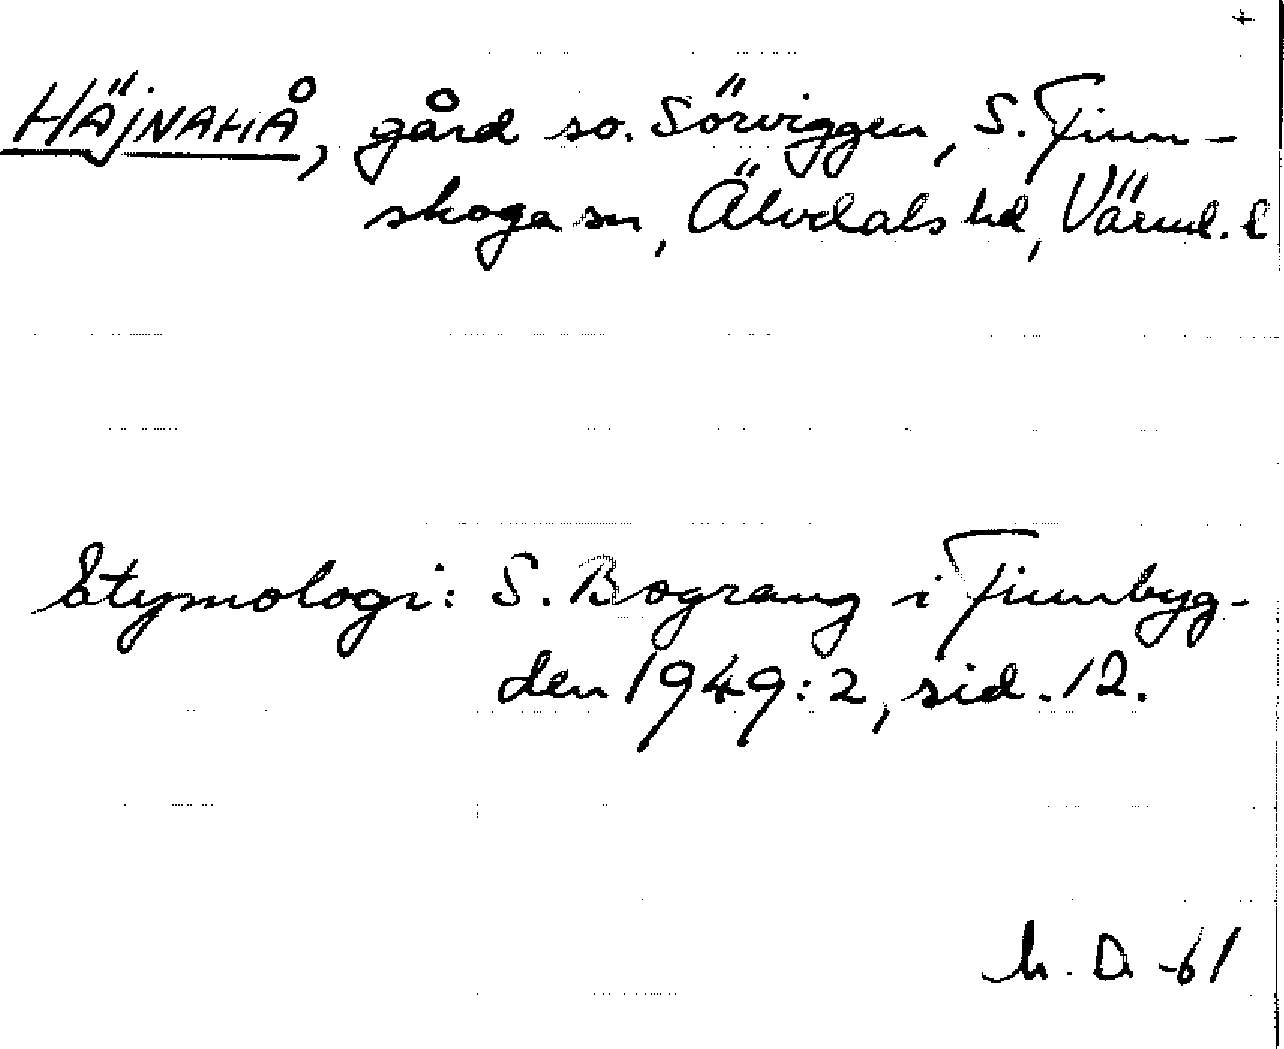 HÄJNAHÅ, gård so. Sörviggen, S. Finn-
skoga sn, Älvdals hd, Värml. l
Etymologi: S. Bograng i Finnbyg-
den 1949:2, sid. 12.
h. D -61